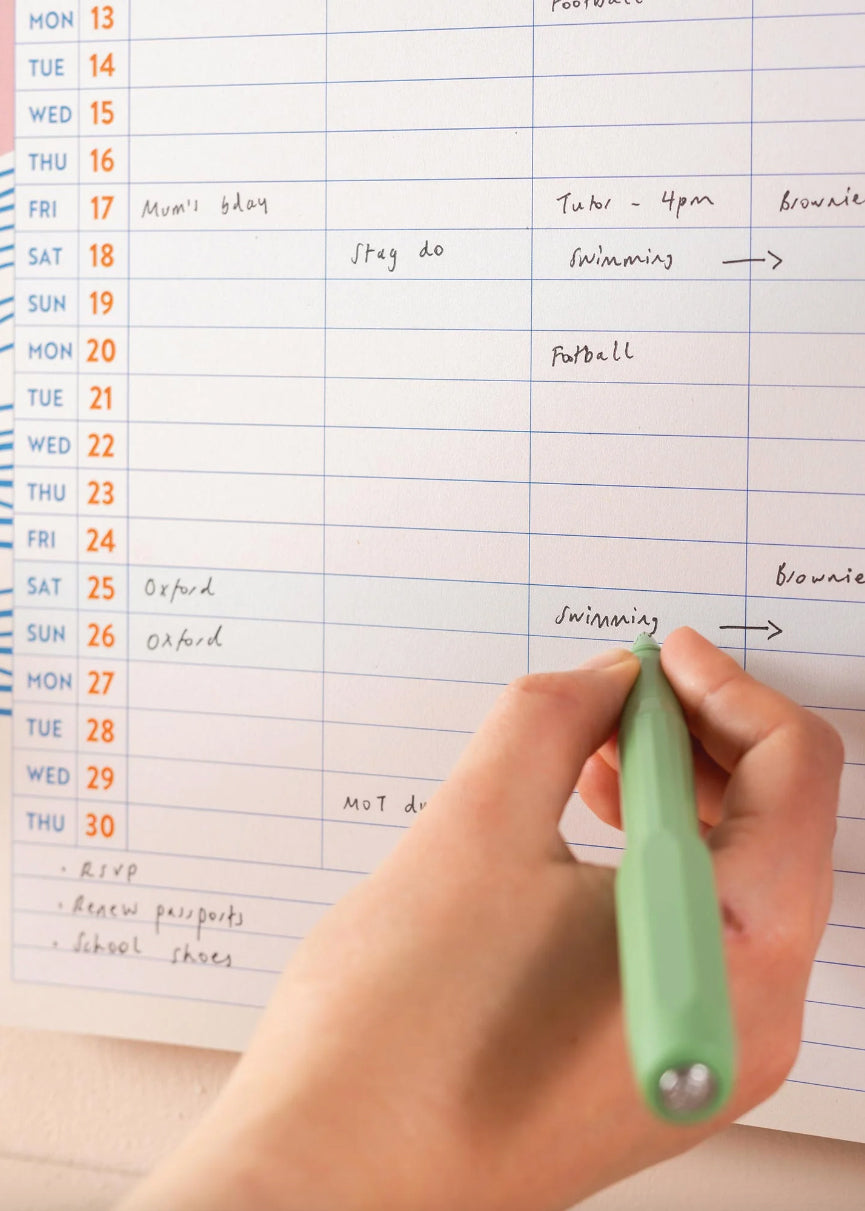 Football
MON 13
TUE 14
WED 15
THU 16
FRI 17 Mum's bday Tutor - 4pm Brownie
SAT 18 Stag do Swimming →
SUN 19
MON 20 Football
TUE 21
WED 22
THU 23
FRI 24 Brownie
SAT 25 Oxford Swimming →
SUN 26 Oxford
MON 27
TUE 28
WED 29 MOT
THU 30
· RSVP
· Renew passports
· School shoes